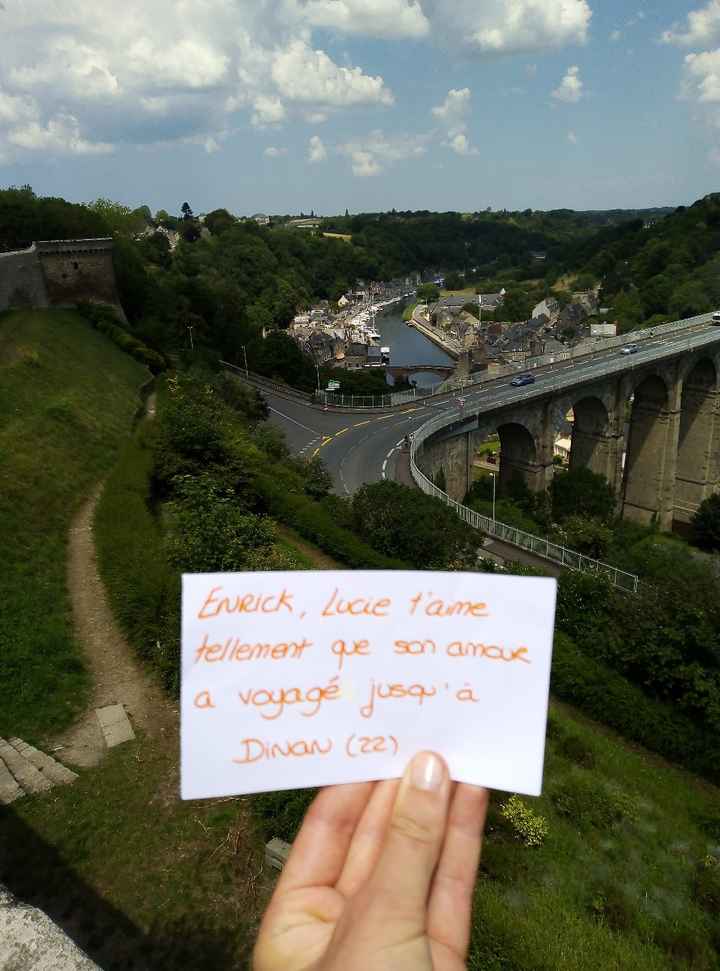 ENRICK, Lucie t'aime
tellement que son amour
a voyagé jusqu'à
DINAN (22)